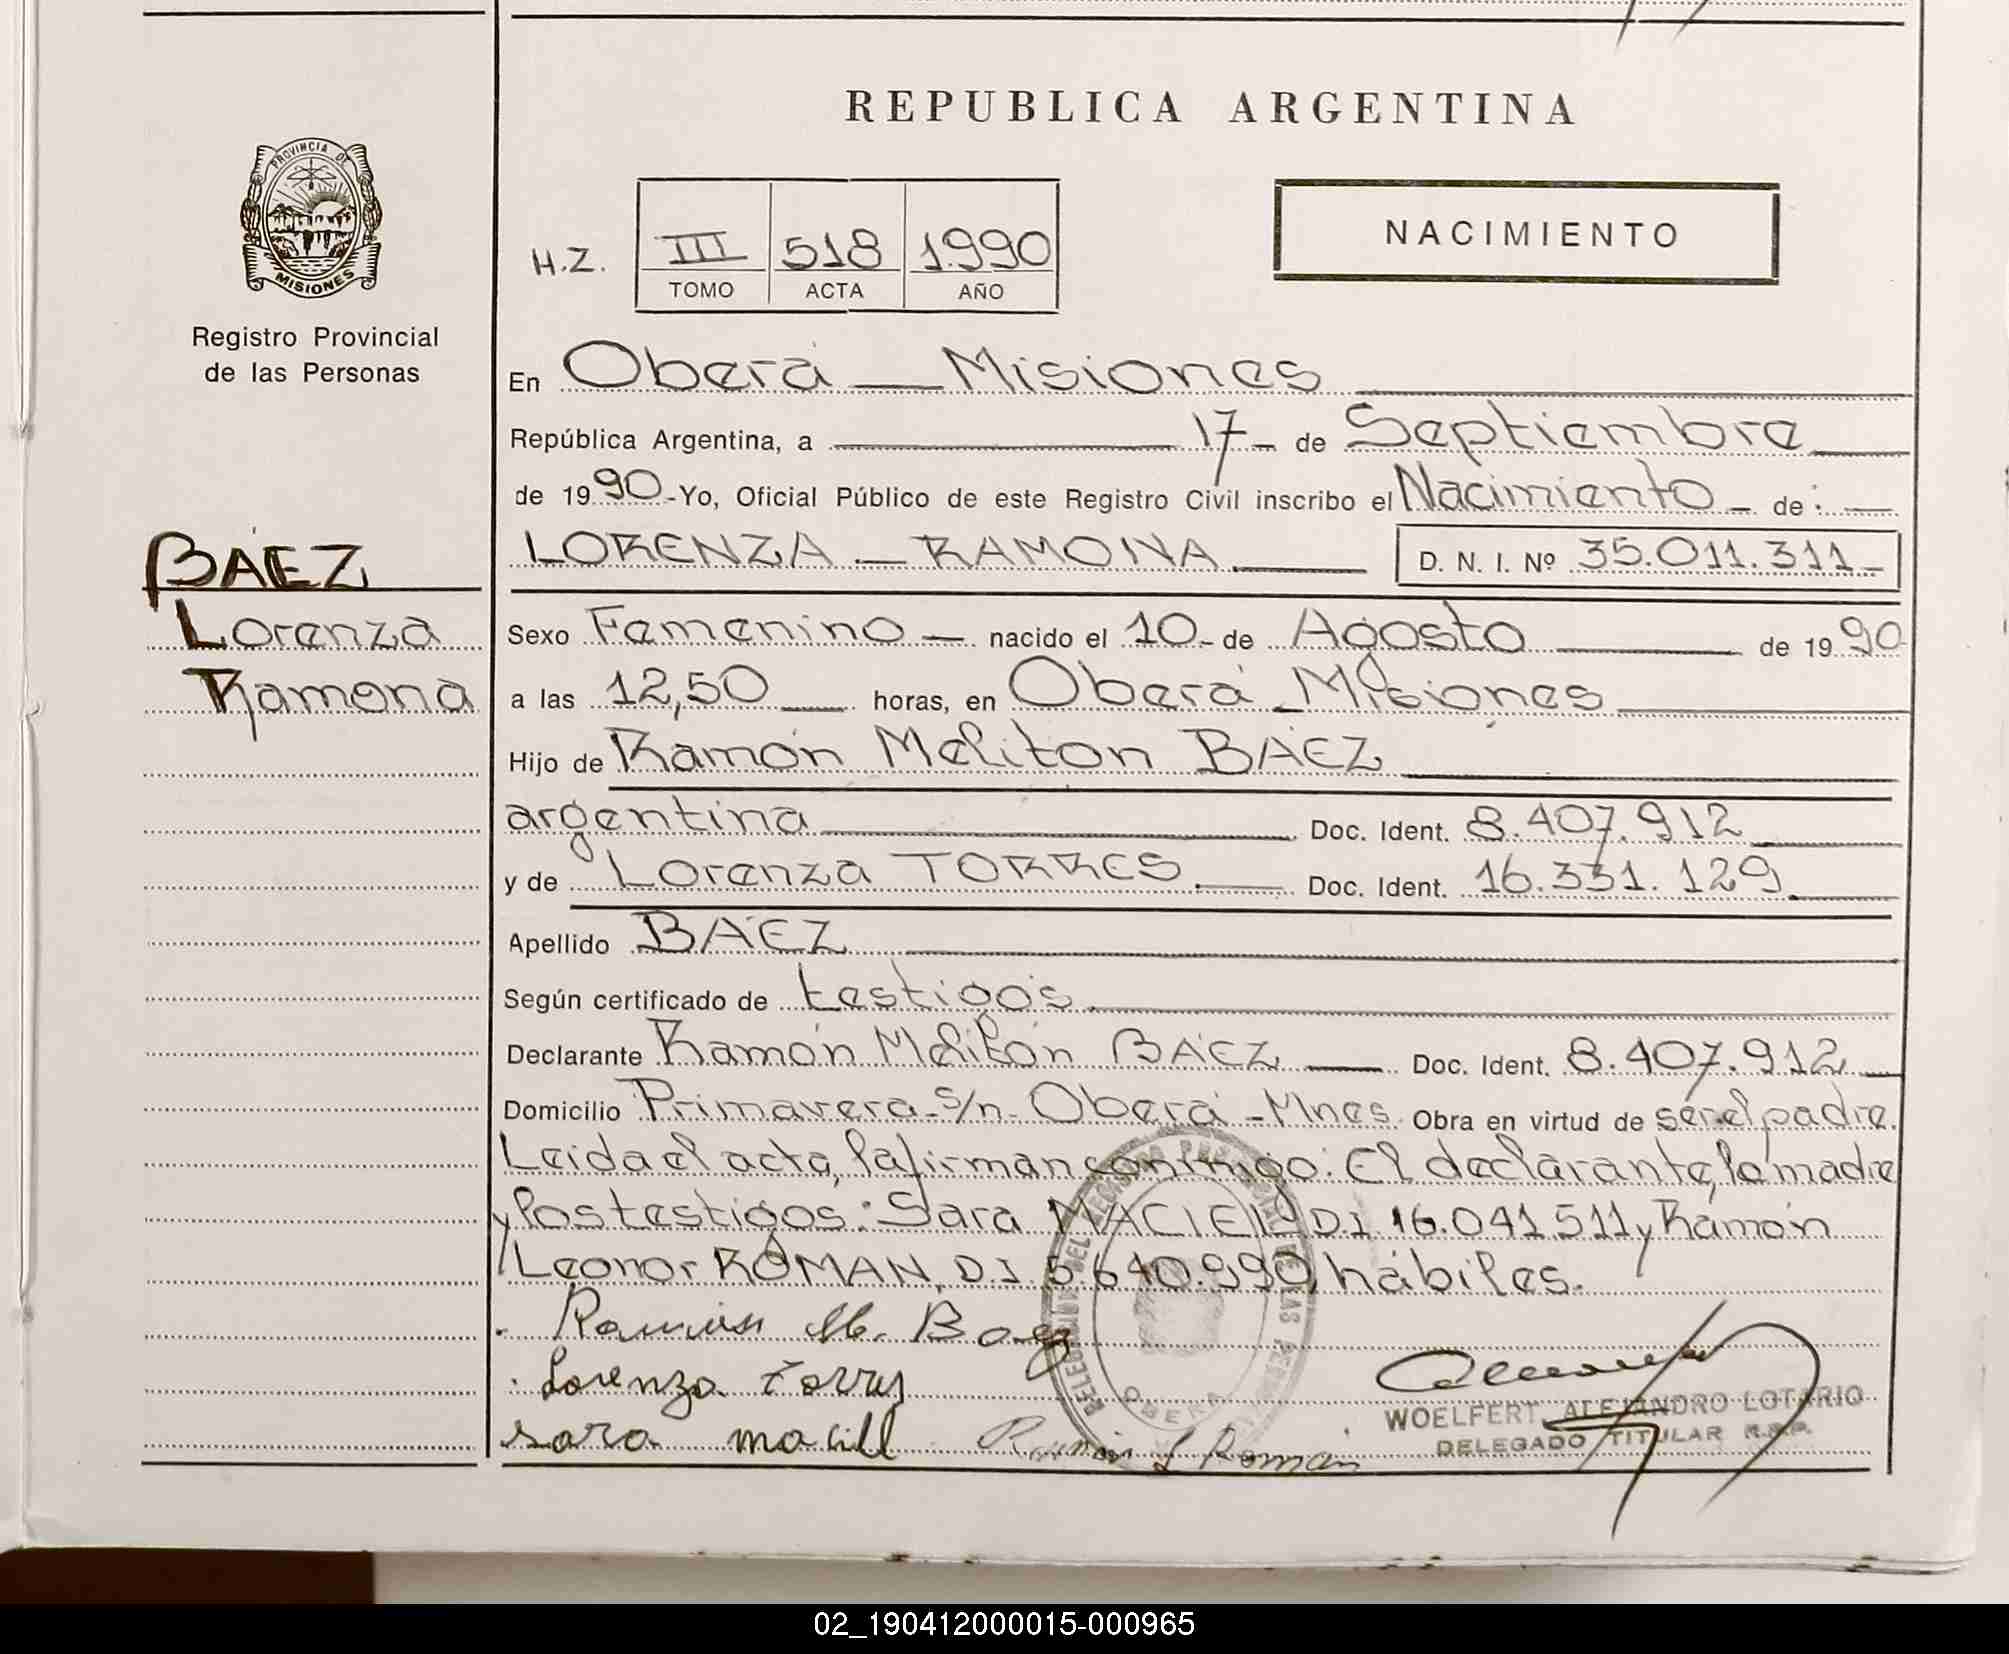 REPUBLICA ARGENTINA
PROVINCIA DE
MISIONES
Registro Provincial
de las Personas
BÁEZ
Lorenza
Ramona
H.Z.
III 518 1.990
TOMO ACTA AÑO
NACIMIENTO
En Oberá — Misiones
República Argentina, a 17 - de Septiembre
de 19 90 - Yo, Oficial Público de este Registro Civil inscribo el Nacimiento - de :
LORENZA — RAMONA D. N. I. Nº 35.011.311
Sexo Femenino — nacido el 10 - de Agosto de 19 90
a las 12,50 horas, en Oberá - Misiones
Hijo de Ramón Meliton BÁEZ
argentina Doc. Ident. 8.407.912
y de Lorenza TORRES Doc. Ident. 16.331.129
Apellido BÁEZ
Según certificado de testigos
Declarante Ramón Melitón BÁEZ Doc. Ident. 8.407.912
Domicilio Primavera - s/n - Oberá - Mnes. Obra en virtud de ser el padre.
Leida el acta, la firman conmigo: El declarante, la madre
y los testigos: Sara MACIEL D.I. 16.041.511 y Ramón
Leonor ROMAN, D.I. 5.640.990, hábiles.
Ramón M. Baez
Lorenza Torres
sara maciel Ramón L Román
DEL REGISTRO PROVINCIAL DE LAS
OBERA
WOELFERT, ALEJANDRO LOTARIO
DELEGADO TITULAR R.P.P.
02_190412000015-000965